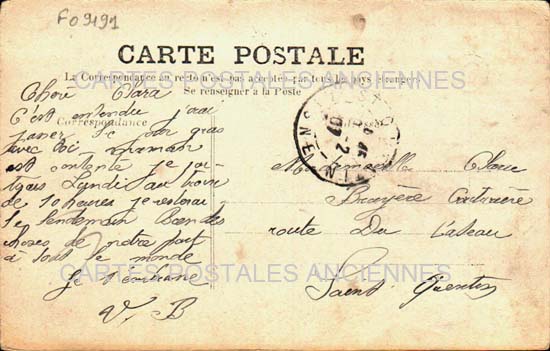 F09191
CARTE POSTALE
La Correspondance au recto n'est pas acceptée par tous les pays étrangers
Se renseigner à la Poste
CARTES POSTALES ANCIENNES
Correspondance
Chère Clara
C'est entendu j'irai
avec toi Maman
est contente je
Lundi au train
de 10 heures je
lendemain Bien des
choses de notre part
à tout le monde
Je t'embrasse
V. B
Mademoiselle
Bruyère Couturière
route Du Cateau
Saint Quentin
CARTES POSTALES ANCIENNES